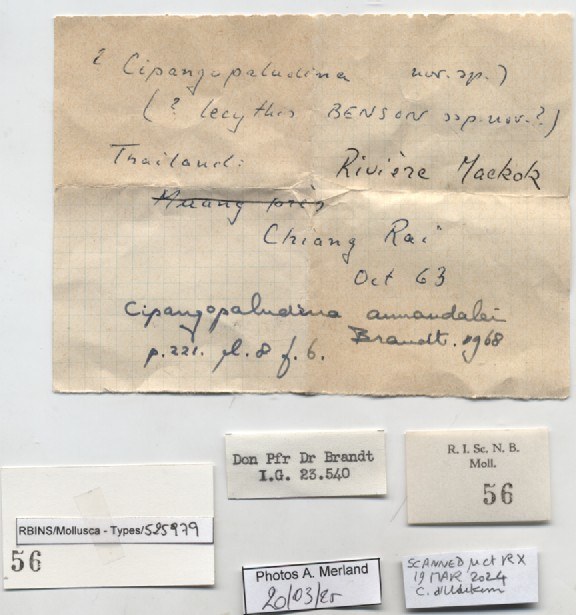 ? Cipangopaludina nov. sp. ?
(? lecythis BENSON ssp. nov. ?)
Thailand: Rivière Maekok
Muang près
Chiang Rai
Oct 63
Cipangopaludina annandalei
Brandt. 1968
p. 221. pl. 8 f. 6.
Don Pfr Dr Brandt
I.G. 23.540
R. I. Sc. N. B.
Moll.
56
RBINS/Mollusca - Types/525979
56
Photos A. Merland
20/03/25
SCANNED µct RX
19 MAR 2024